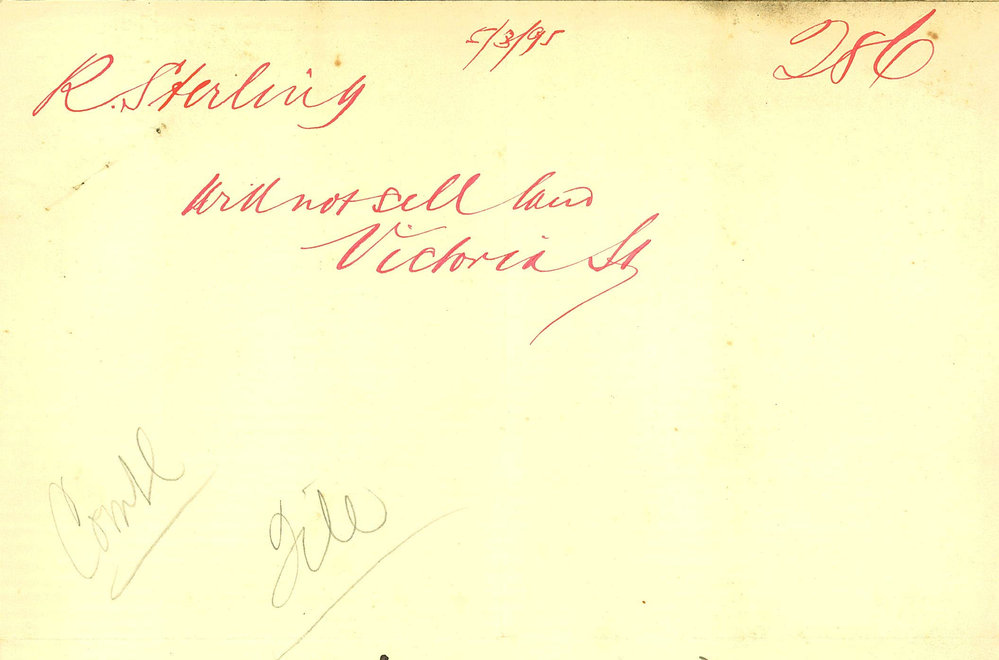 5/3/95
286
R. Sterling
Will not sell land
Victoria St
Comtl
File